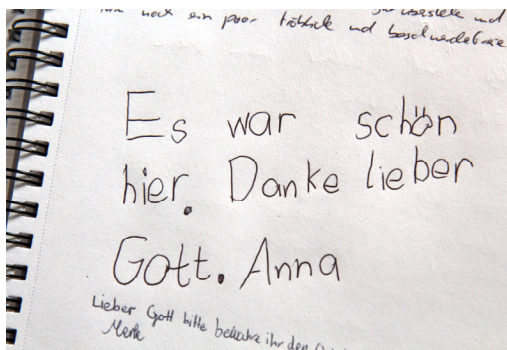 noch ein paar fröhliche und beschwerdefreie
Es war schön
hier. Danke lieber
Gott. Anna
Lieber Gott bitte bewahre ihr den